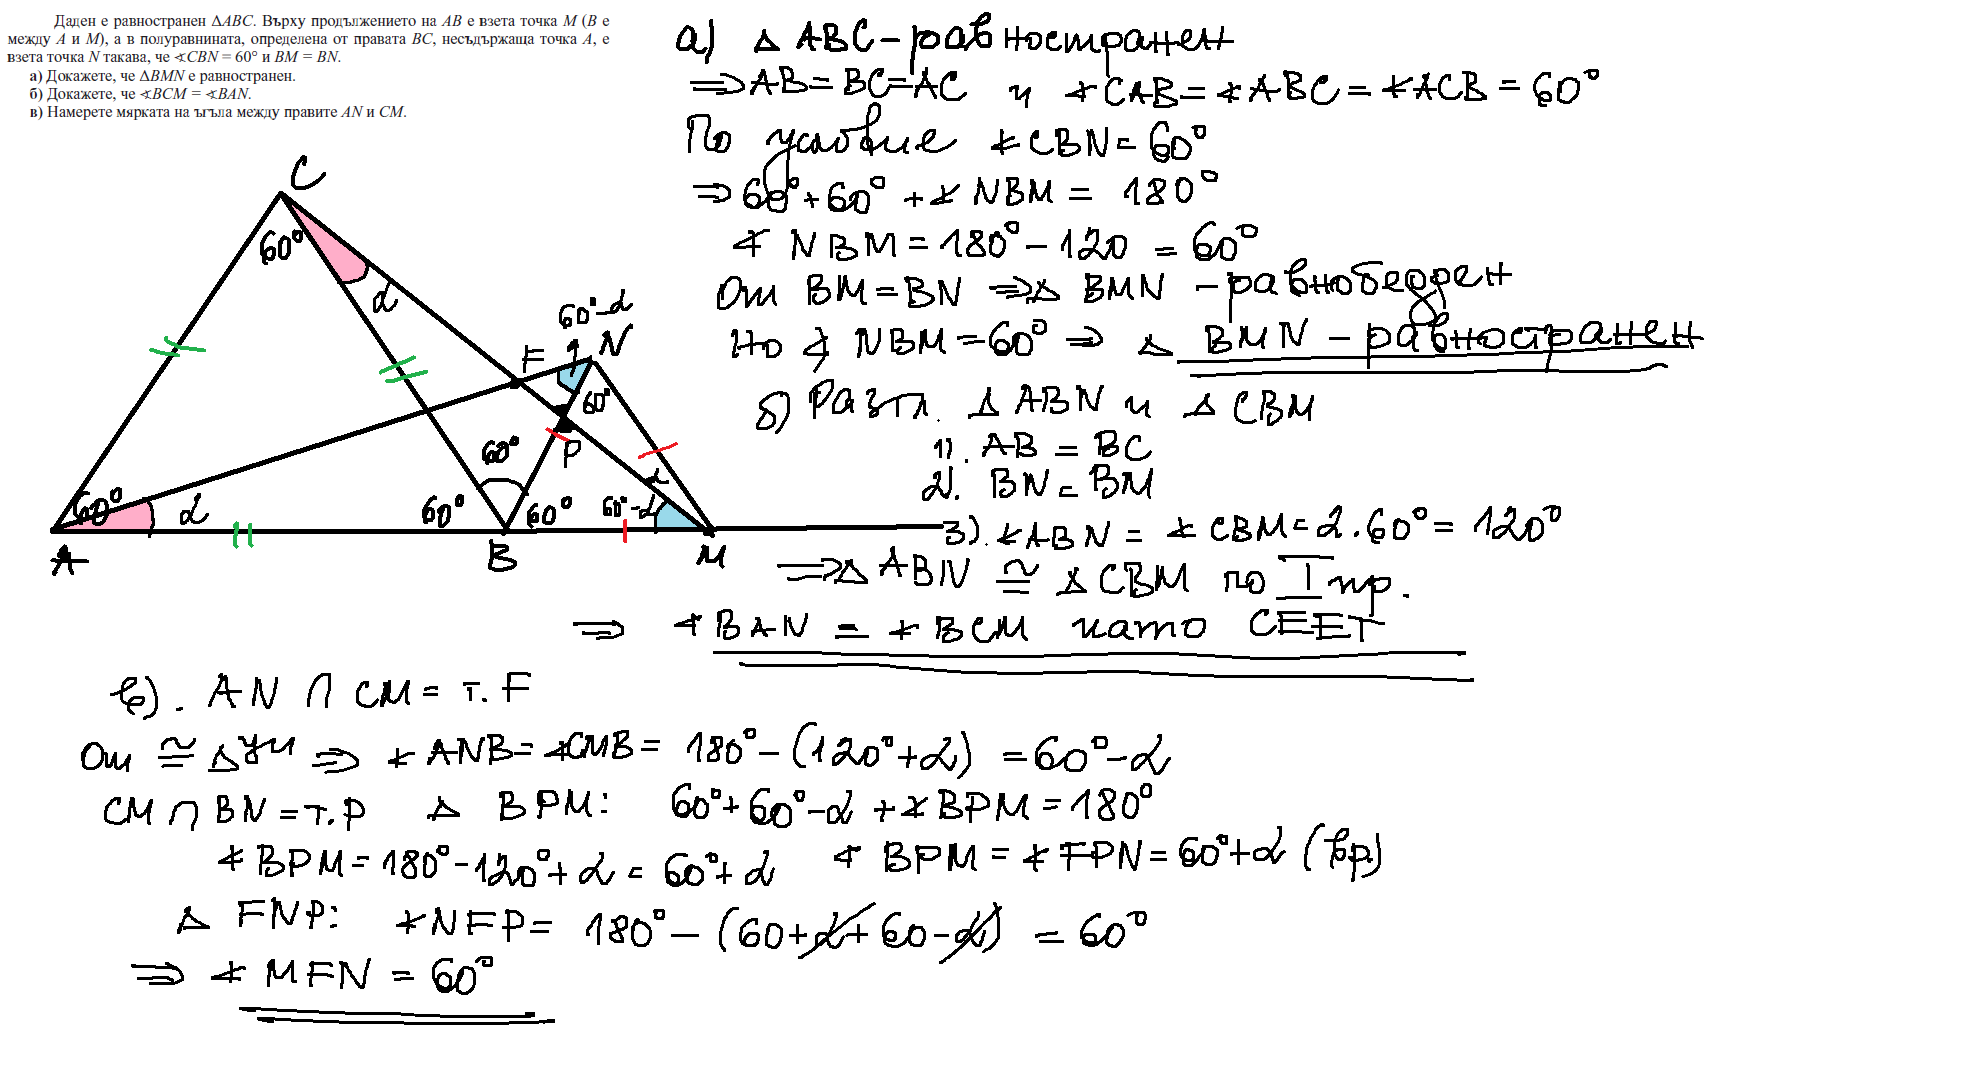 Даден е равностранен ΔABC. Върху продължението на AB е взета точка M (B е
между A и M), а в полуравнината, определена от правата BC, несъдържаща точка A, е
взета точка N такава, че ∢CBN = 60° и BM = BN.
а) Докажете, че ΔBMN е равностранен.
б) Докажете, че ∢BCM = ∢BAN.
в) Намерете мярката на ъгъла между правите AN и CM.
а) Δ ABC - равностранен
⇒ AB = BC = AC и ∢CAB = ∢ABC = ∢ACB = 60°
По условие ∢CBN = 60°
⇒ 60° + 60° + ∢NBM = 180°
∢NBM = 180° - 120 = 60°
От BM = BN ⇒ Δ BMN - равнобедрен
Но ∢ NBM = 60° ⇒ Δ BMN - равностранен
б) Разгл. Δ ABN и Δ CBM
1). AB = BC
2). BN = BM
3). ∢ABN = ∢CBM = 2.60° = 120°
⇒ Δ ABN ≅ Δ CBM по I пр.
⇒ ∢BAN = ∢BCM като СЕЕТ
C
60°
α
60°-α
F
N
60°
60°
P
α
60°
α
60°
60°
60°-α
A
B
M
в). AN ∩ CM = т. F
От ≅ Δ ци ⇒ ∢ANB = ∢CMB = 180° - (120° + α) = 60° - α
CM ∩ BN = т. P Δ BPM: 60° + 60° - α + ∢BPM = 180°
∢BPM = 180° - 120° + α = 60° + α ∢BPM = ∢FPN = 60° + α (вр)
Δ FNP: ∢NFP = 180° - (60 + α + 60 - α) = 60°
⇒ ∢MFN = 60°